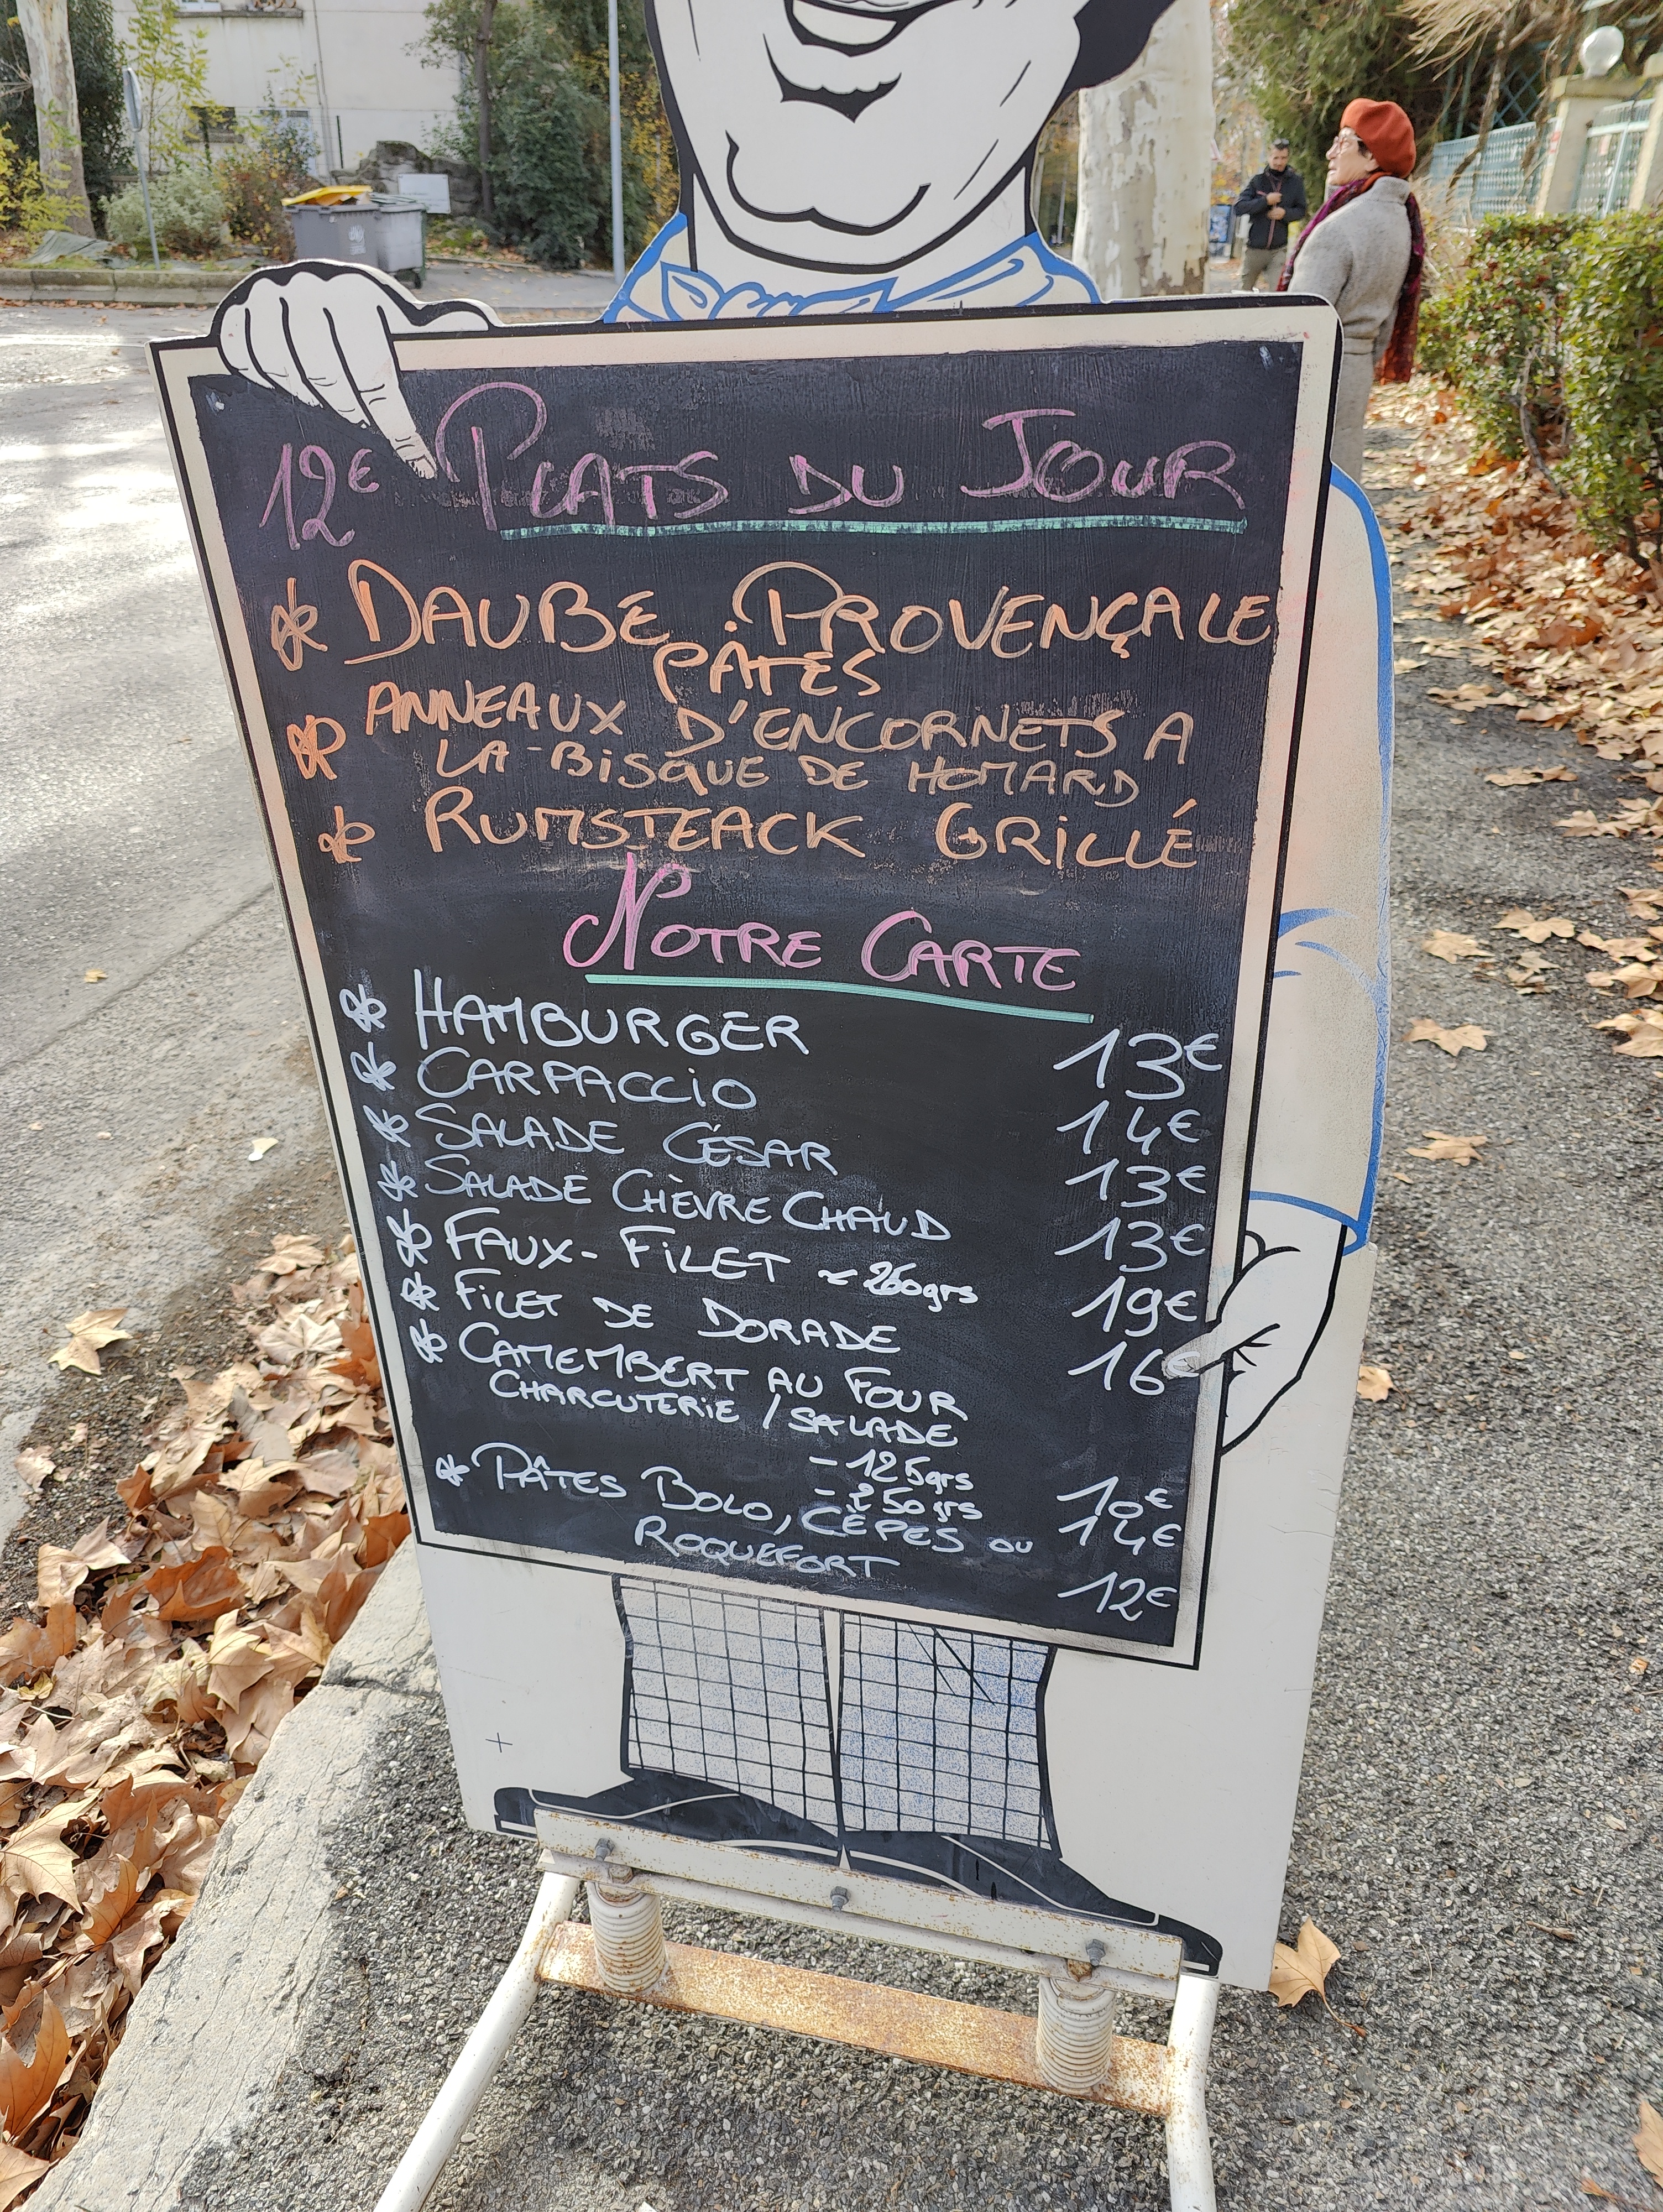 12€ PLATS DU JOUR
* DAUBE PROVENÇALE
PÂTES
* ANNEAUX D'ENCORNETS A
LA BISQUE DE HOMARD
* RUMSTEACK GRILLÉ
NOTRE CARTE
* HAMBURGER 13€
* CARPACCIO 14€
* SALADE CÉSAR 13€
* SALADE CHÈVRE CHAUD 13€
* FAUX-FILET ~ 260grs 19€
* FILET DE DORADE 16€
* CAMEMBERT AU FOUR
CHARCUTERIE / SALADE
- 125grs 10€
- 250grs 14€
* PÂTES BOLO, CÈPES OU
ROQUEFORT 12€